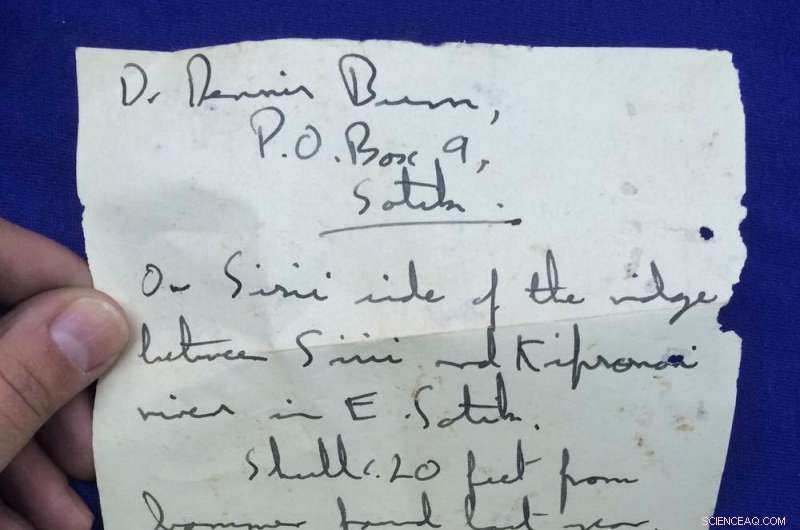 Dr Dennis Burn,
P.O. Box 9,
Sotik.
On side of the ridge
between and Kipsonoi
rivers in E. Sotik.
Skull c. 20 feet from
hammer found last year
SCIENCEAQ.COM